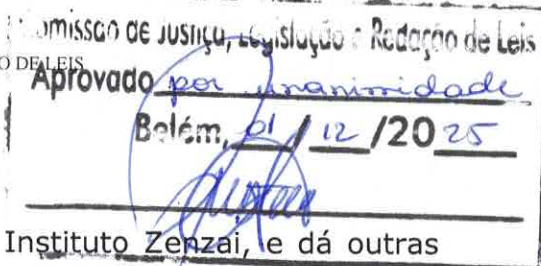 Comissão de Justiça, Legislação e Redação de Leis
O DE LEIS
Aprovado por unanimidade
Belém, 01 / 12 /20 25
Instituto Zenzai, e dá outras